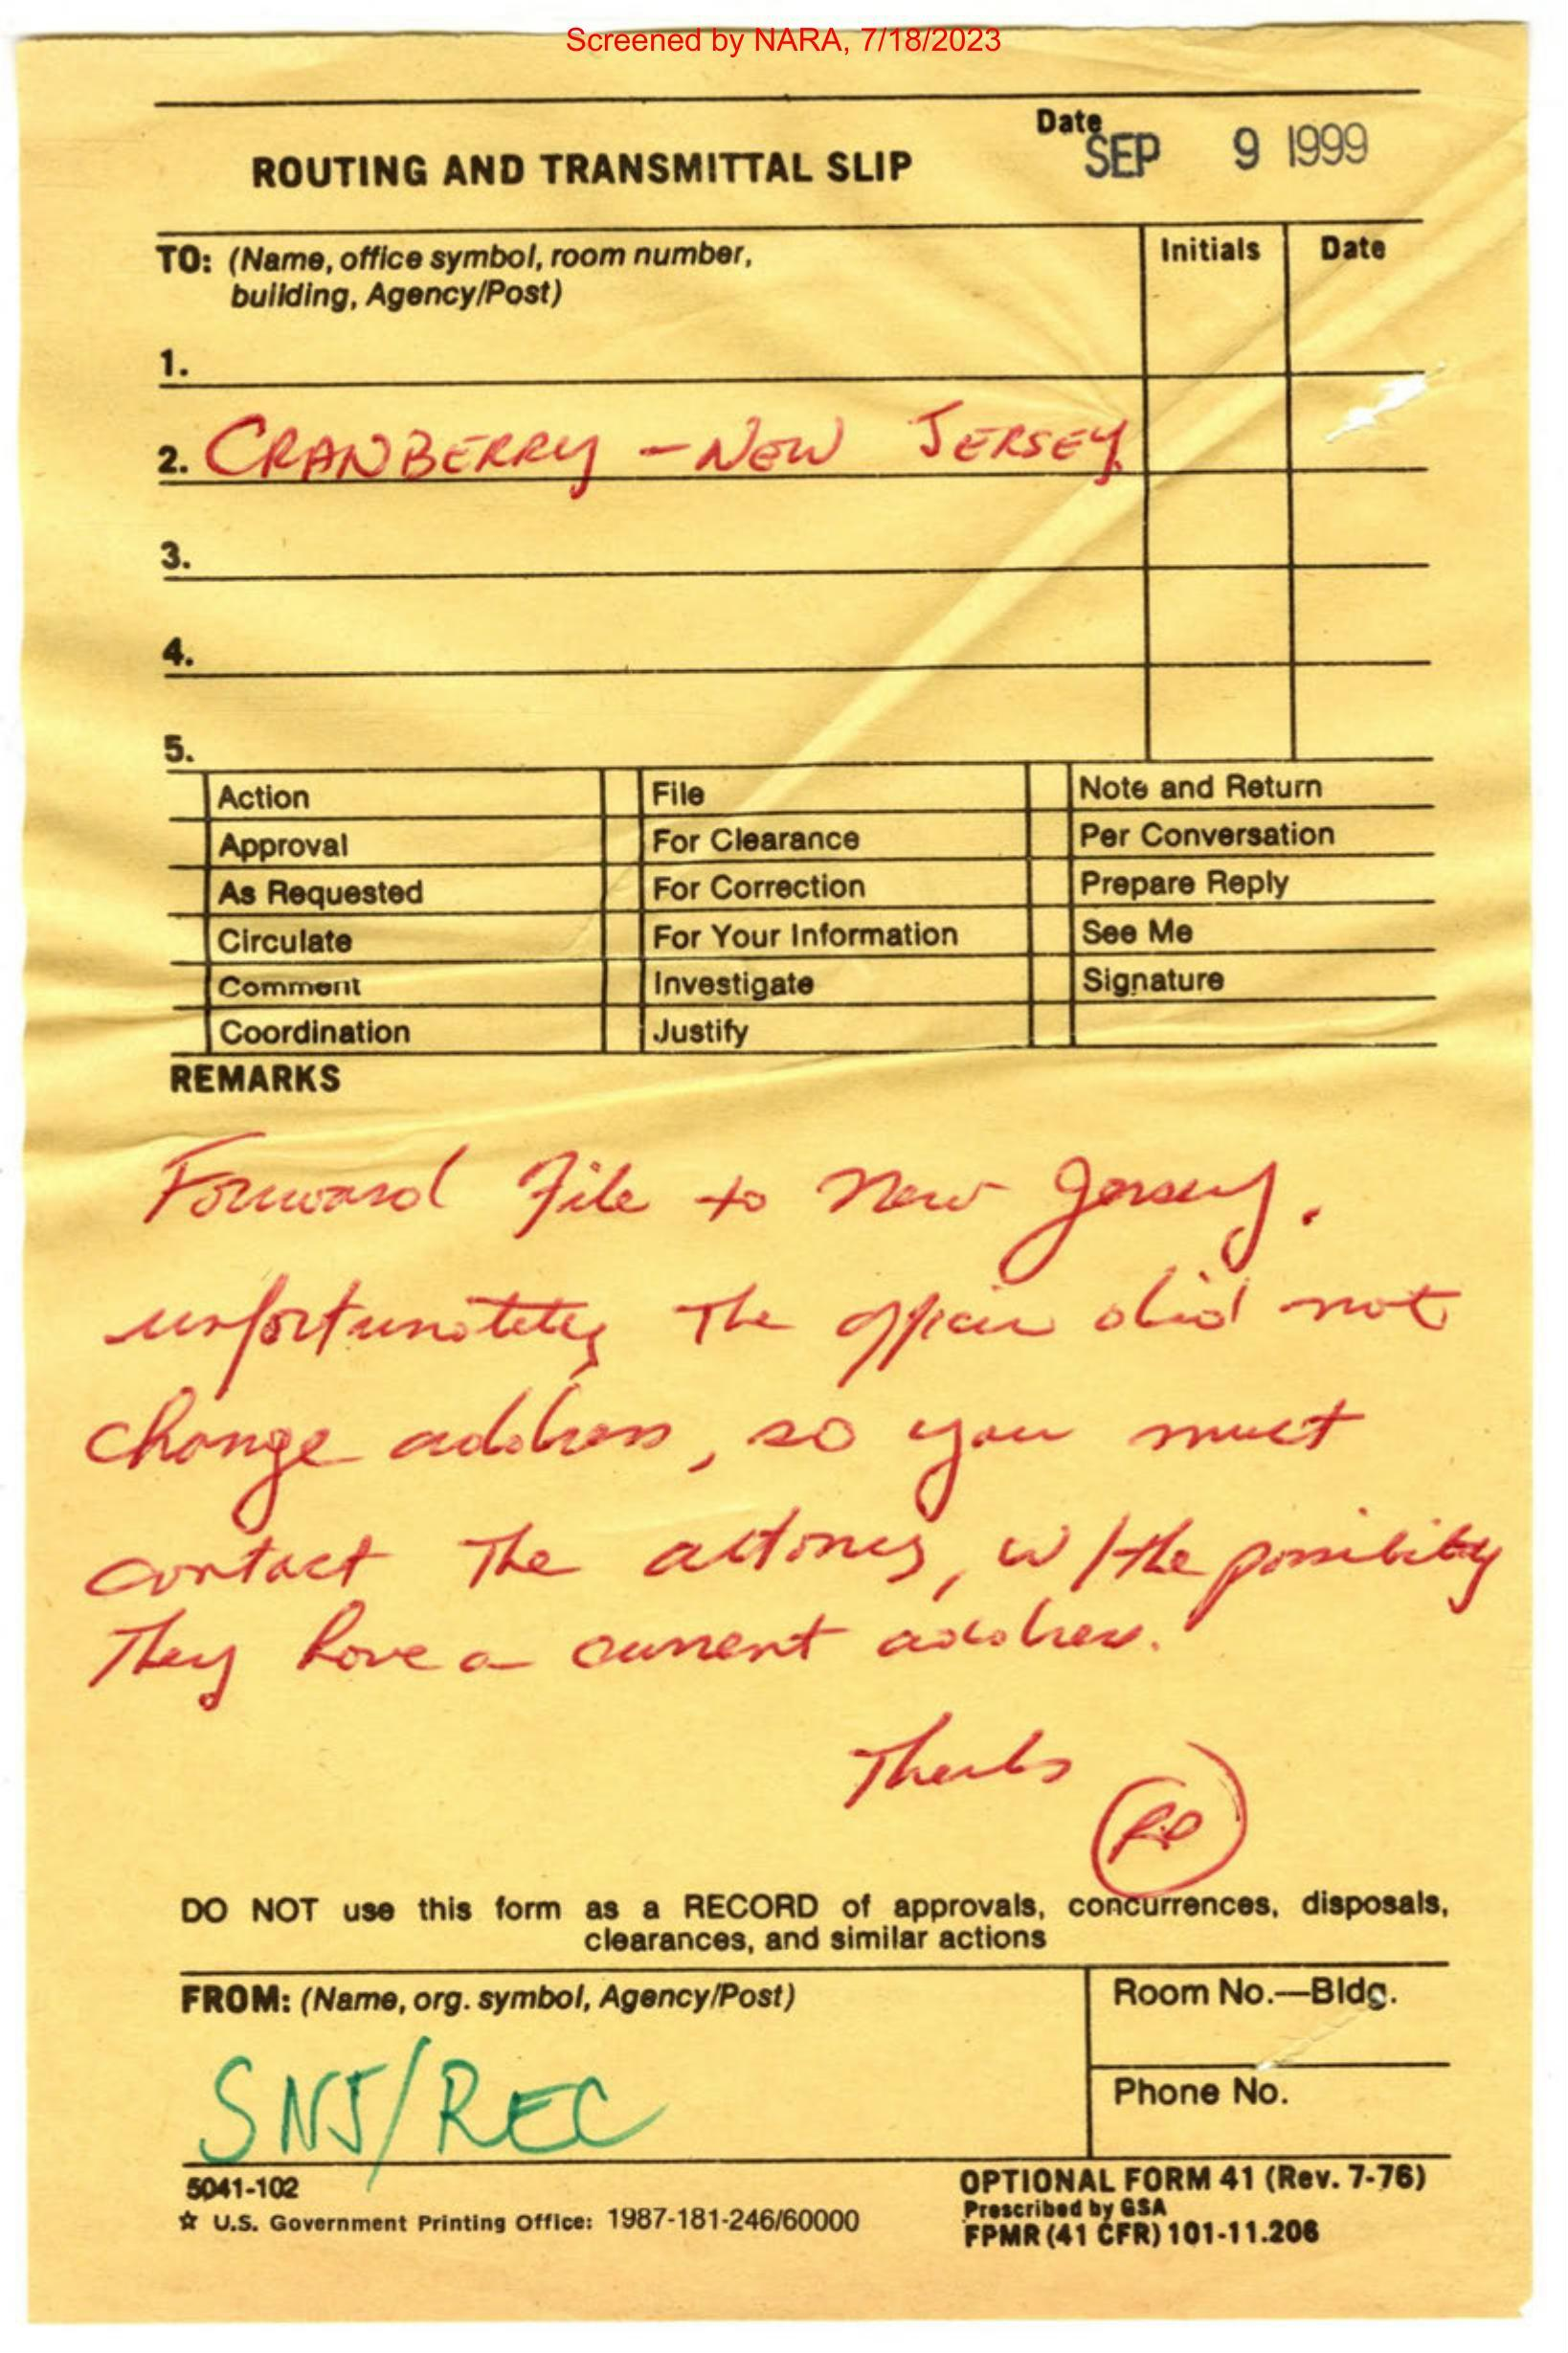 Screened by NARA, 7/18/2023
Date
SEP 9 1999
ROUTING AND TRANSMITTAL SLIP
TO: (Name, office symbol, room number,
building, Agency/Post)
Initials
Date
1.
2. CRANBERRY - NEW JERSEY
3.
4.
5.
Action
File
Note and Return
Approval
For Clearance
Per Conversation
As Requested
For Correction
Prepare Reply
Circulate
For Your Information
See Me
Comment
Investigate
Signature
Coordination
Justify
REMARKS
Forward File to New Jersey.
unfortunately The did not
change address, so you must
contact The attorney, w/the possibility
They have a current address.
Thanks
DO NOT use this form as a RECORD of approvals, concurrences, disposals,
clearances, and similar actions
FROM: (Name, org. symbol, Agency/Post)
Room No.—Bldg.
SNJ/REC
Phone No.
5041-102
☆ U.S. Government Printing Office: 1987-181-246/60000
OPTIONAL FORM 41 (Rev. 7-76)
Prescribed by GSA
FPMR (41 CFR) 101-11.206